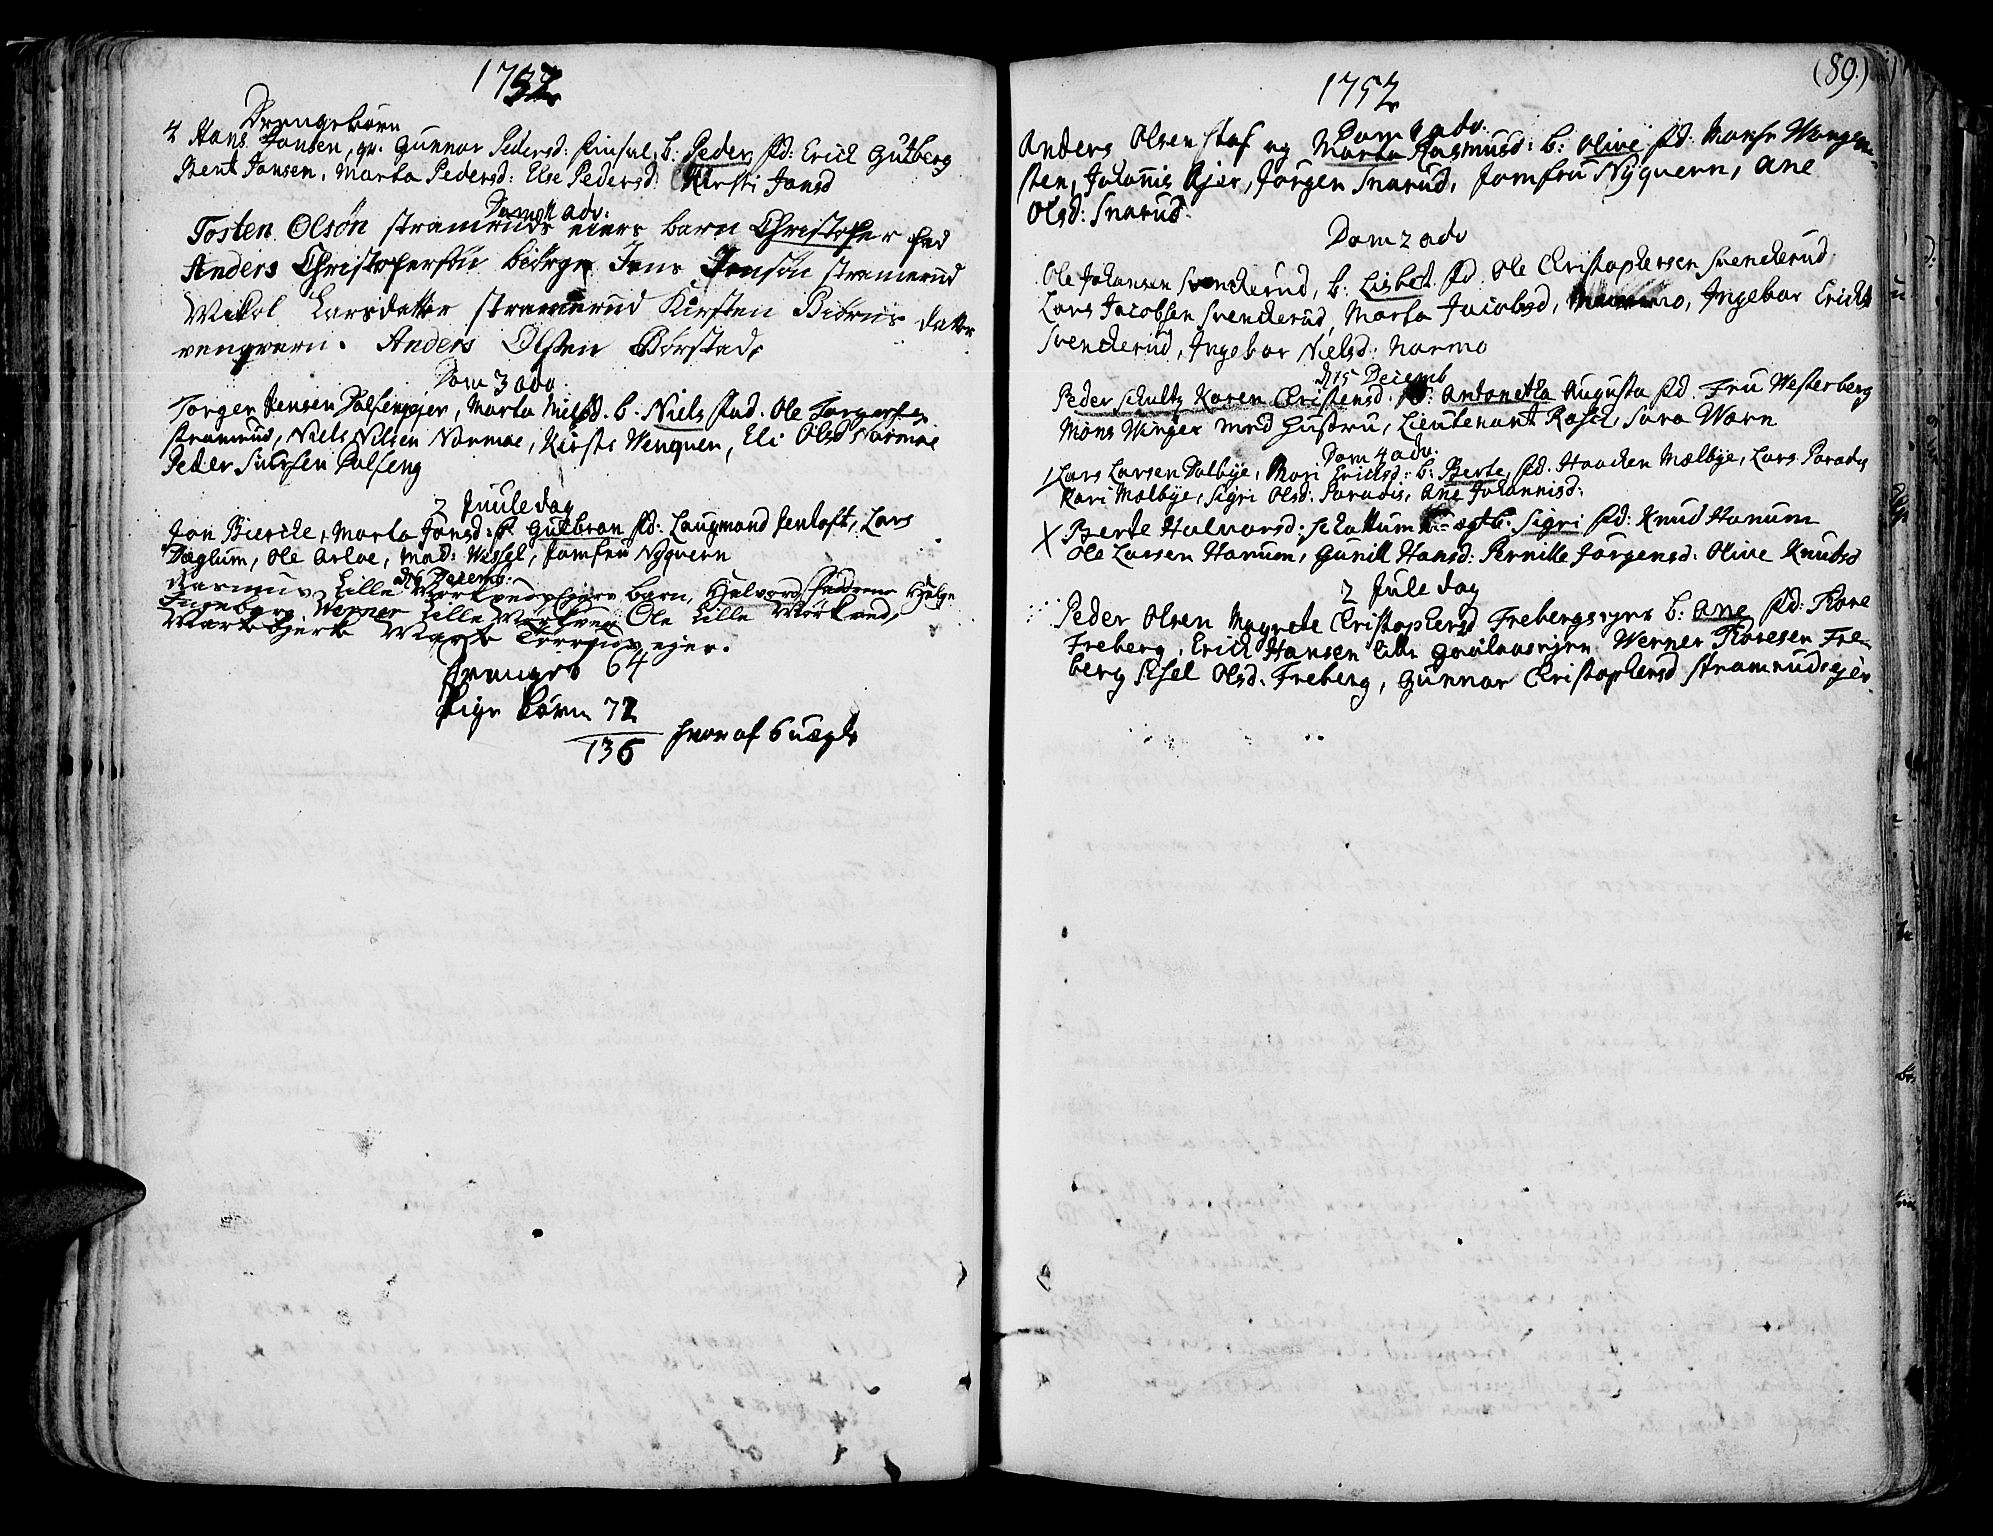 1757
Drengebørn
4 Hans Jonsen, qv. Gunnor Pedersd: Finsal, b. Peder fad: Erich Gutberg
Bent Jansen, Marta Pedersd: Else Pedersd: Kirsti Jonsd
Dom 2 adv.
Tosten Olsøn stramruds eiers barn Christopher fad
Anders Christophersøn Jens Jensøn stramerud
Mikol Larsdatter stramerud Kirsten Biørns datter
venqvern. Anders Olsen Børstad.
Dom 3 adv.
Torger Jensen Dalsengejer, Marta Nielsd. b. Niels fad. Ole Torgersen
stramrud, Niels Nilsen Narmoe, Kirsti Wenquern, Eli Olsd Narmoe
Peder Dalseng
2 Juule dag
Jon Biercke, Marta Jonsd: b. Gulbran fd: Laugmand Lars
Dæglum, Ole Arloe, Mad: Wessel, Jomfru Nyquern
d 26 Decemb:
Rasmus Lille barn, Halvord fadderne Helge
Fureberg Werner Lille Ole Lille
Marte ejer.
Drenge 64
Pige børn 72
136 hvor af 6 uægte
(89.)
1757
Dom 1 adv.
Anders Olsen Staf og Marta Rasmusd: b: Olive fd: Monsr Wangen-
sten, Johannis Kjer, Jørgen Snarud, Jomfru Nyquern, Ane
Olsd: Snarud.
Dom 2 adv
Ole Johansen Svenckerud, b: Lisbet fd: Ole Christophersen Svenckerud,
Lars Jacobsen Svenckerud, Marta Jacobsd, Ingebor Erichs
Svenckerud, Ingebor Nielsd: Narmo
d 15 Decemb
Peder Schultz Karen Christensd. b: Antonetta Augusta fd. Fru Westerberg
Mons Winger med Hustru, Lieutenant Rasch, Sara Warn
Dom 4 adv.
1 Lars Larsen Dalbye, Mari Erichsd: b: Berte, fd. Haachen Mælbye, Lars Paradis
Kari Mælbye, Sigri Olsd: Paradis, Ane Johannisd:
X Berte Halvorsd: Schattum uægt b: Sigri fd: Knud Hanum
Ole Larsen Hanum, Gunill Hansd: Pernille Jørgensd: Olive Knudsd
2 Jule dag
Peder Olsen Magrete Christophersd Frebergsejer b: Ane fd: Tore
Freberg, Erich Hansen Werner Toresen Fre-
berg Sisel Olsd: Freberg, Gunnor Christophersd Stramrudsejer